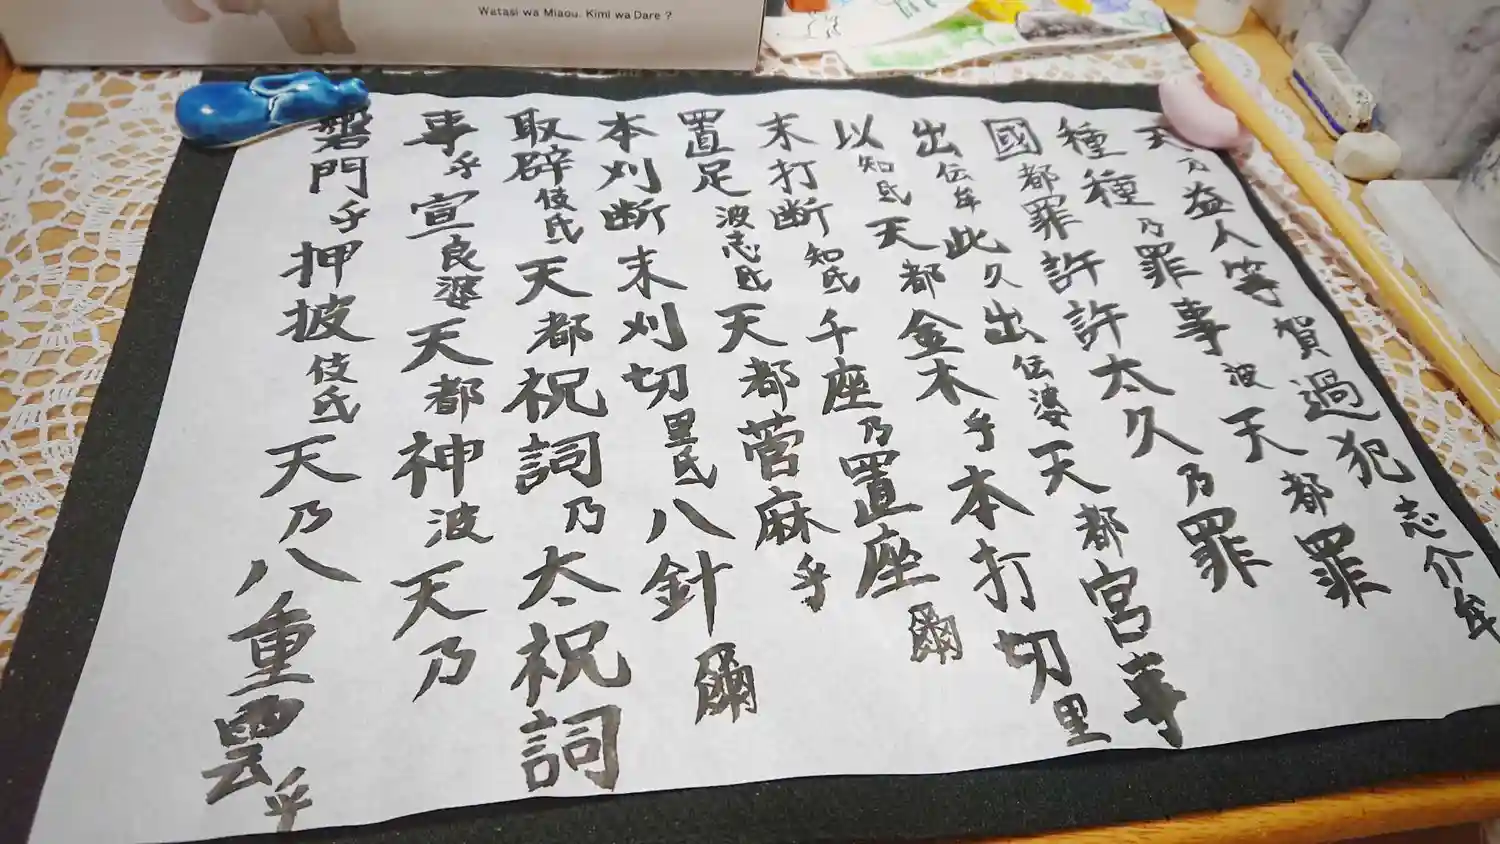 Watasi wa Miaou. Kimi wa Dare ?
天乃益人等賀過犯志介牟
種種乃罪事波天都罪
國都罪許許太久乃罪
出伝牟此久出伝婆天都宮事
以知氐天都金木乎本打切里
末打断知氐千座乃置座爾
置足波志氐天都菅麻乎
本刈断末刈切里氐八針爾
取辟伎氐天都祝詞乃太祝詞
事乎宣良婆天都神波天乃
磐門乎押披伎氐天乃八重雲乎